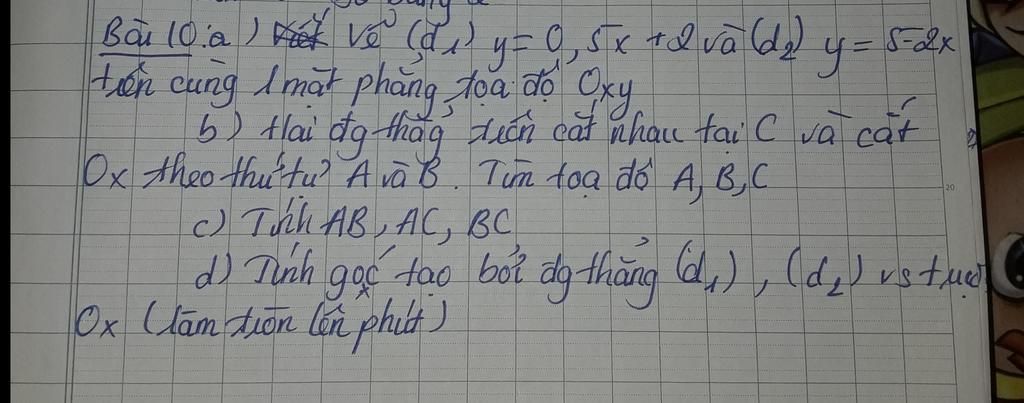 Bài 10: a) Vẽ (d₁) y = 0,5x + 2 và (d₂) y = 5-2x
trên cùng 1 mặt phẳng tọa độ Oxy
b) Hai đg thẳg trên cắt nhau tại C và cắt
Ox theo thứ tự A và B. Tìm toạ độ A, B, C
c) Tính AB, AC, BC
d) Tính góc tạo bởi đg thẳng (d₁), (d₂) vs trục
Ox (làm tròn đến phút)